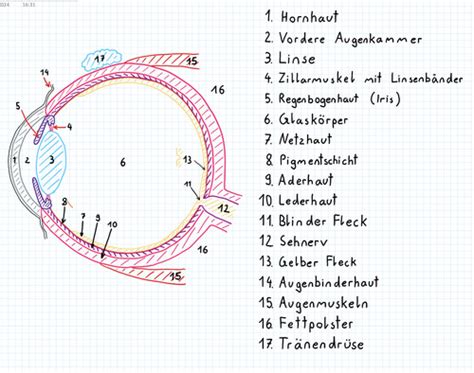 16:31
1. Hornhaut
2. Vordere Augenkammer
3. Linse
4. Zillarmuskel mit Linsenbänder
5. Regenbogenhaut (Iris)
6. Glaskörper
7. Netzhaut
8. Pigmentschicht
9. Aderhaut
10. Lederhaut
11. Blinder Fleck
12. Sehnerv
13. Gelber Fleck
14. Augenbinderhaut
15. Augenmuskeln
16. Fettpolster
17. Tränendrüse
17
15
14
16
5
4
1
2
3
6
13
11
12
8
7
9
10
16
15